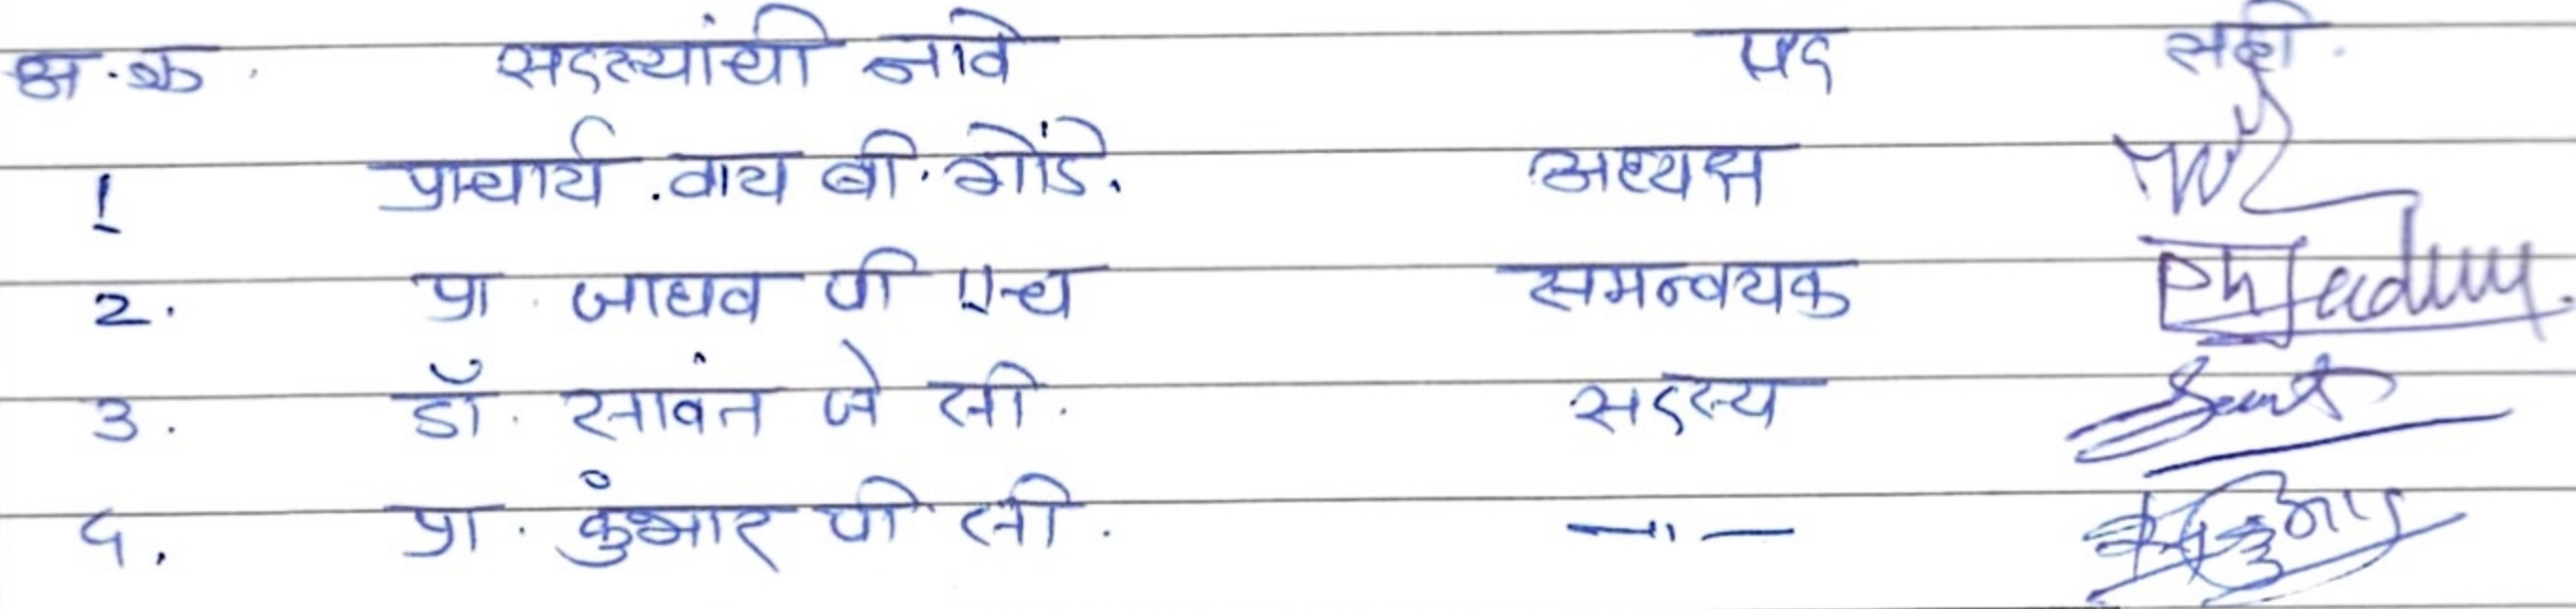 अ.क्र. सदस्यांची नावे पद सही.
1 प्राचार्य.वाय बी. गोंडे. अध्यक्ष
2. प्रा. जाधव पी एच समन्वयक PhJadhav
3. डॉ. सावंत जे सी. सदस्य
4. प्रा. कुंभार पी सी. —"—